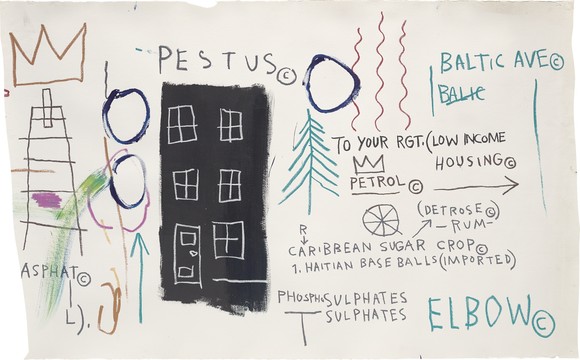 PESTUS©
BALTIC AVE©
BALTIC
TO YOUR RGT. (LOW INCOME
HOUSING©
PETROL©
(DETROSE©)
-RUM-
R
CARIBBEAN SUGAR CROP©
1. HAITIAN BASE BALLS (IMPORTED)
ASPHAT©
L).
SULPHATES
SULPHATES
T
ELBOW©